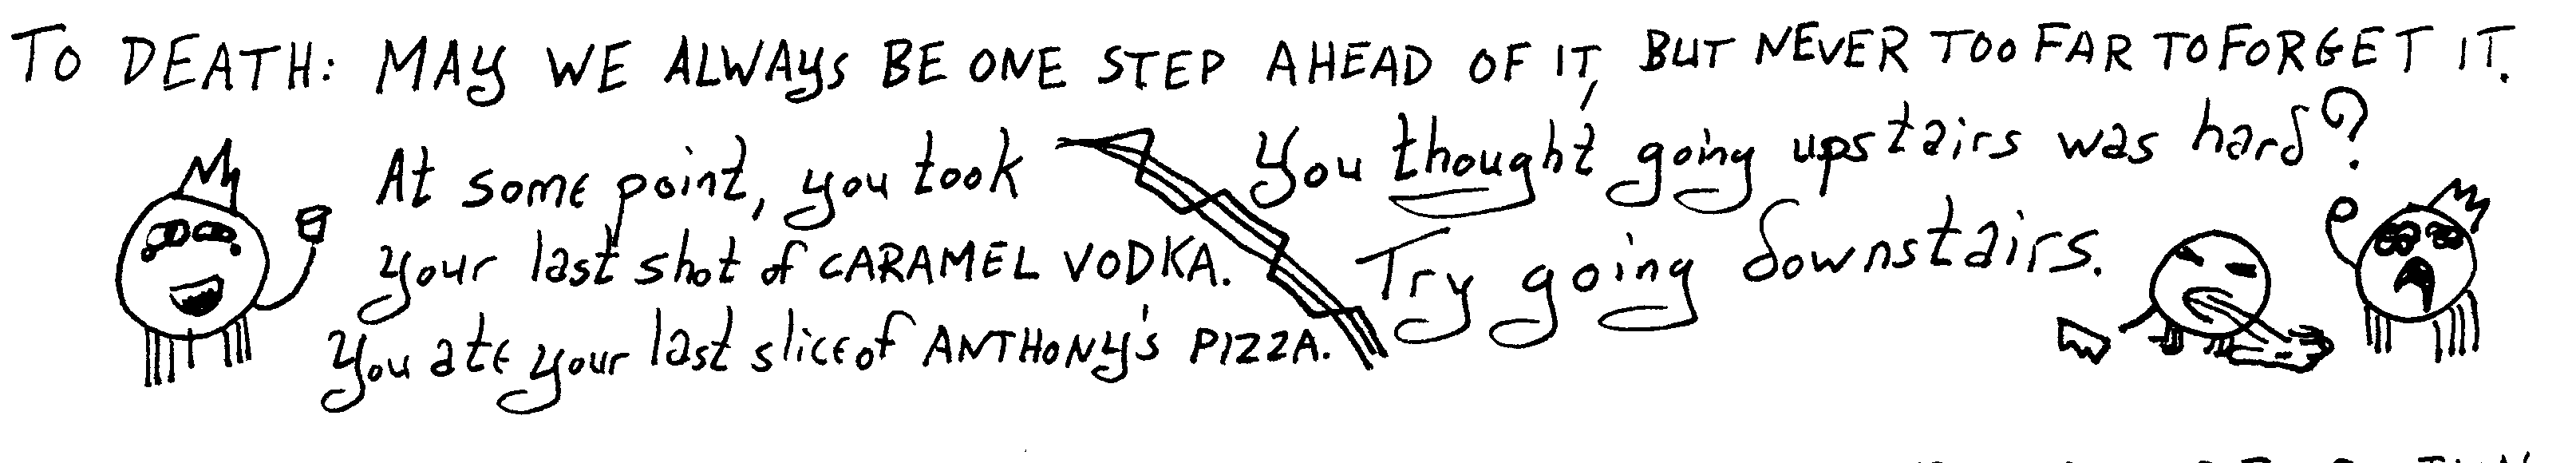 TO DEATH: MAY WE ALWAYS BE ONE STEP AHEAD OF IT, BUT NEVER TOO FAR TO FORGET IT.
At some point, you took
your last shot of CARAMEL VODKA.
You ate your last slice of ANTHONY'S PIZZA.
You thought going upstairs was hard?
Try going downstairs.